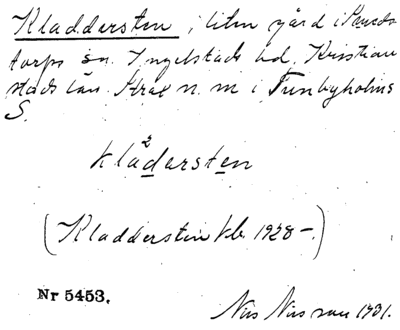 Kladdersten, liten gård i Smeds
torps sn Ingelstads hd. Kristian
stads län. Strax n. m i Tunbyholms
S.
2
kladersten
(Kladdersten kb. 1928-.)
Nr 5453.
Nils Nilsson 1931.